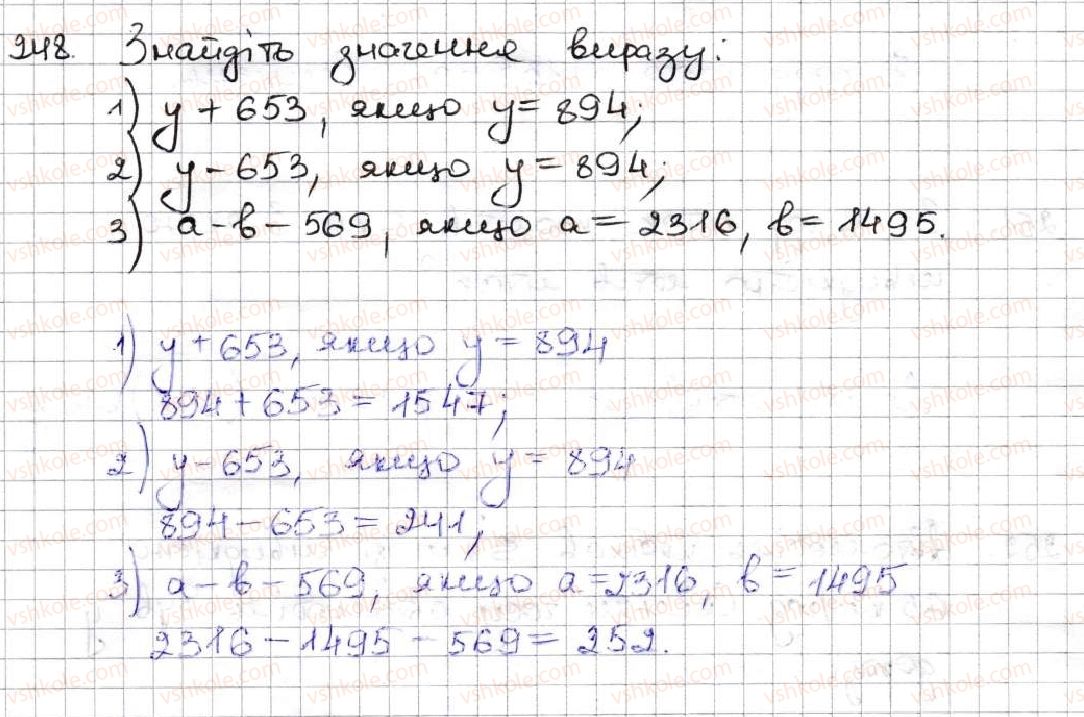 248. Знайдіть значення виразу:
1) y + 653, якщо y = 894;
2) y - 653, якщо y = 894;
3) a - b - 569, якщо a = 2316, b = 1495.
1) y + 653, якщо y = 894
894 + 653 = 1547;
2) y - 653, якщо y = 894
894 - 653 = 241;
3) a - b - 569, якщо a = 2316, b = 1495
2316 - 1495 - 569 = 252.